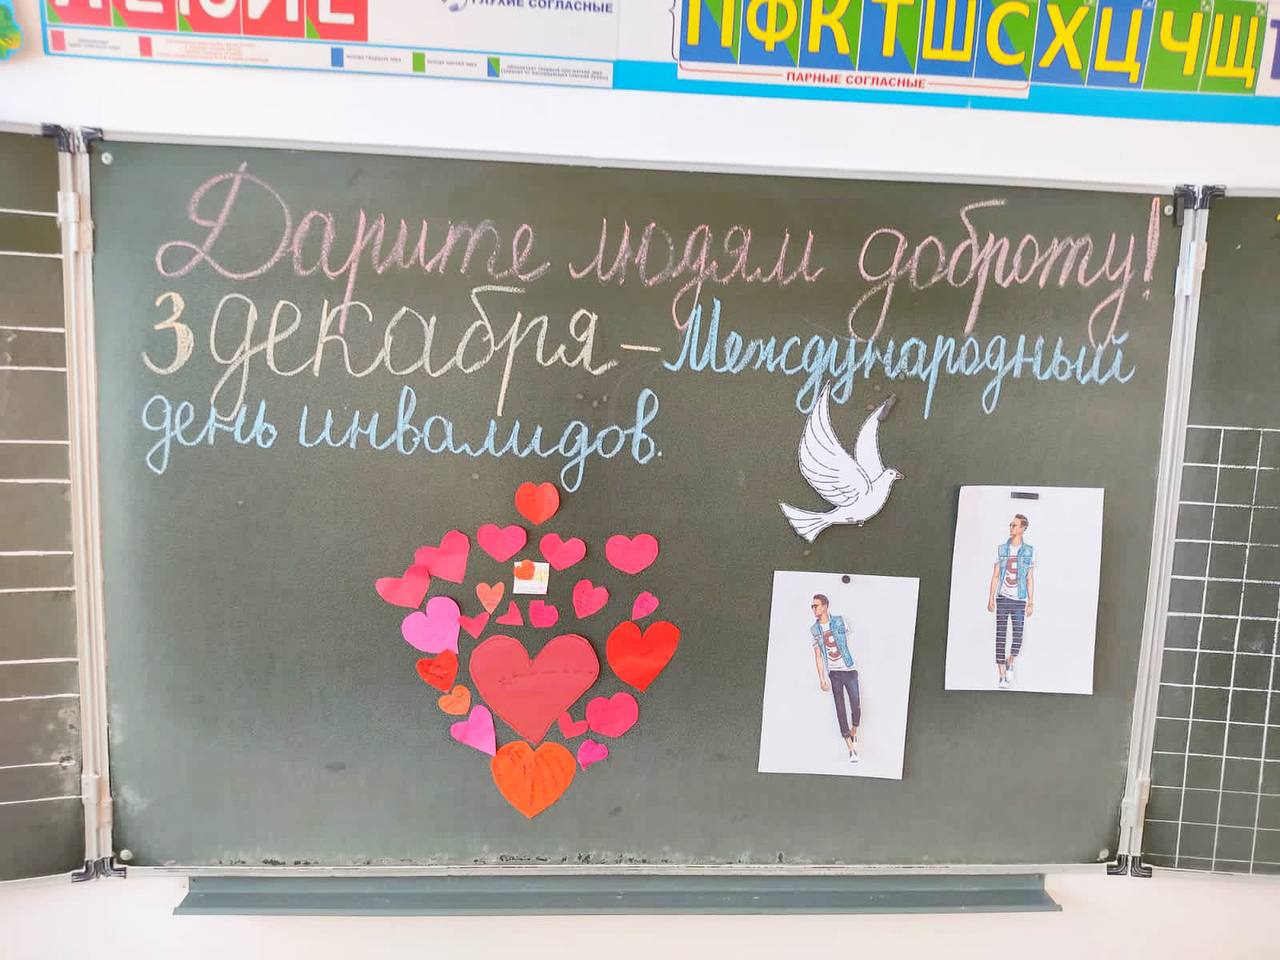 ГЛУХИЕ СОГЛАСНЫЕ
П Ф К Т Ш С Х Ц Ч Щ
ПАРНЫЕ СОГЛАСНЫЕ
Дарите людям доброту!
3 декабря – Международный
день инвалидов.
9
9